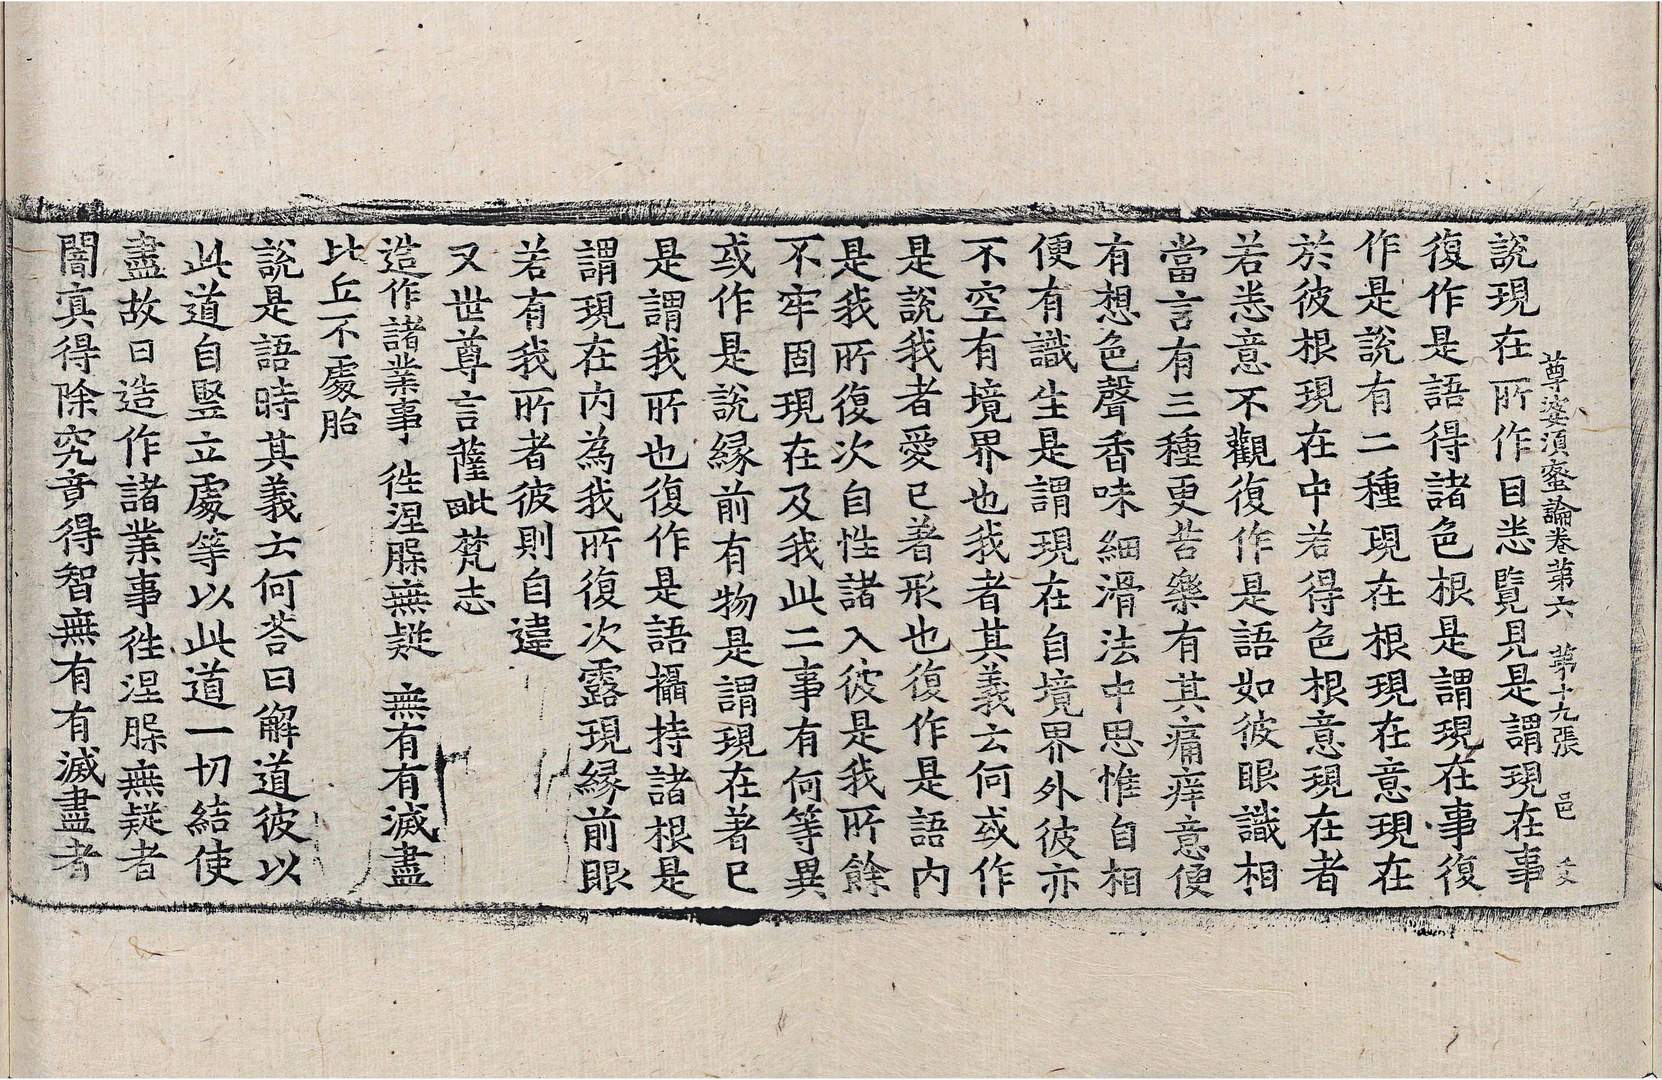 尊婆須蜜論卷第六　第十九張　邑
說現在所作目悉覽見是謂現在事
復作是語得諸色根是謂現在事復
作是說有二種現在根現在意現在
於彼根現在中若得色根意現在者
若悉意不觀復作是語如彼眼識相
當言有三種更苦樂有其痛痒意便
有想色聲香味細滑法中思惟自相
便有識生是謂現在自境界外彼亦
不空有境界也我者其義云何或作
是說我者愛已著形也復作是語內
是我所復次自性諸入彼是我所餘
不牢固現在及我此二事有何等異
或作是說緣前有物是謂現在著已
是謂我所也復作是語攝持諸根是
謂現在內為我所復次露現緣前眼
若有我所者彼則自違
又世尊言薩毗梵志
造作諸業事　徃涅脲無疑　無有有滅盡
比丘不處胎
說是語時其義云何荅曰解道彼以
此道自竪立處等以此道一切結使
盡故曰造作諸業事徃涅脲無疑者
闇寘得除究竟得智無有有滅盡者